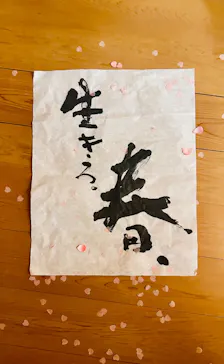 春、
生きろ。